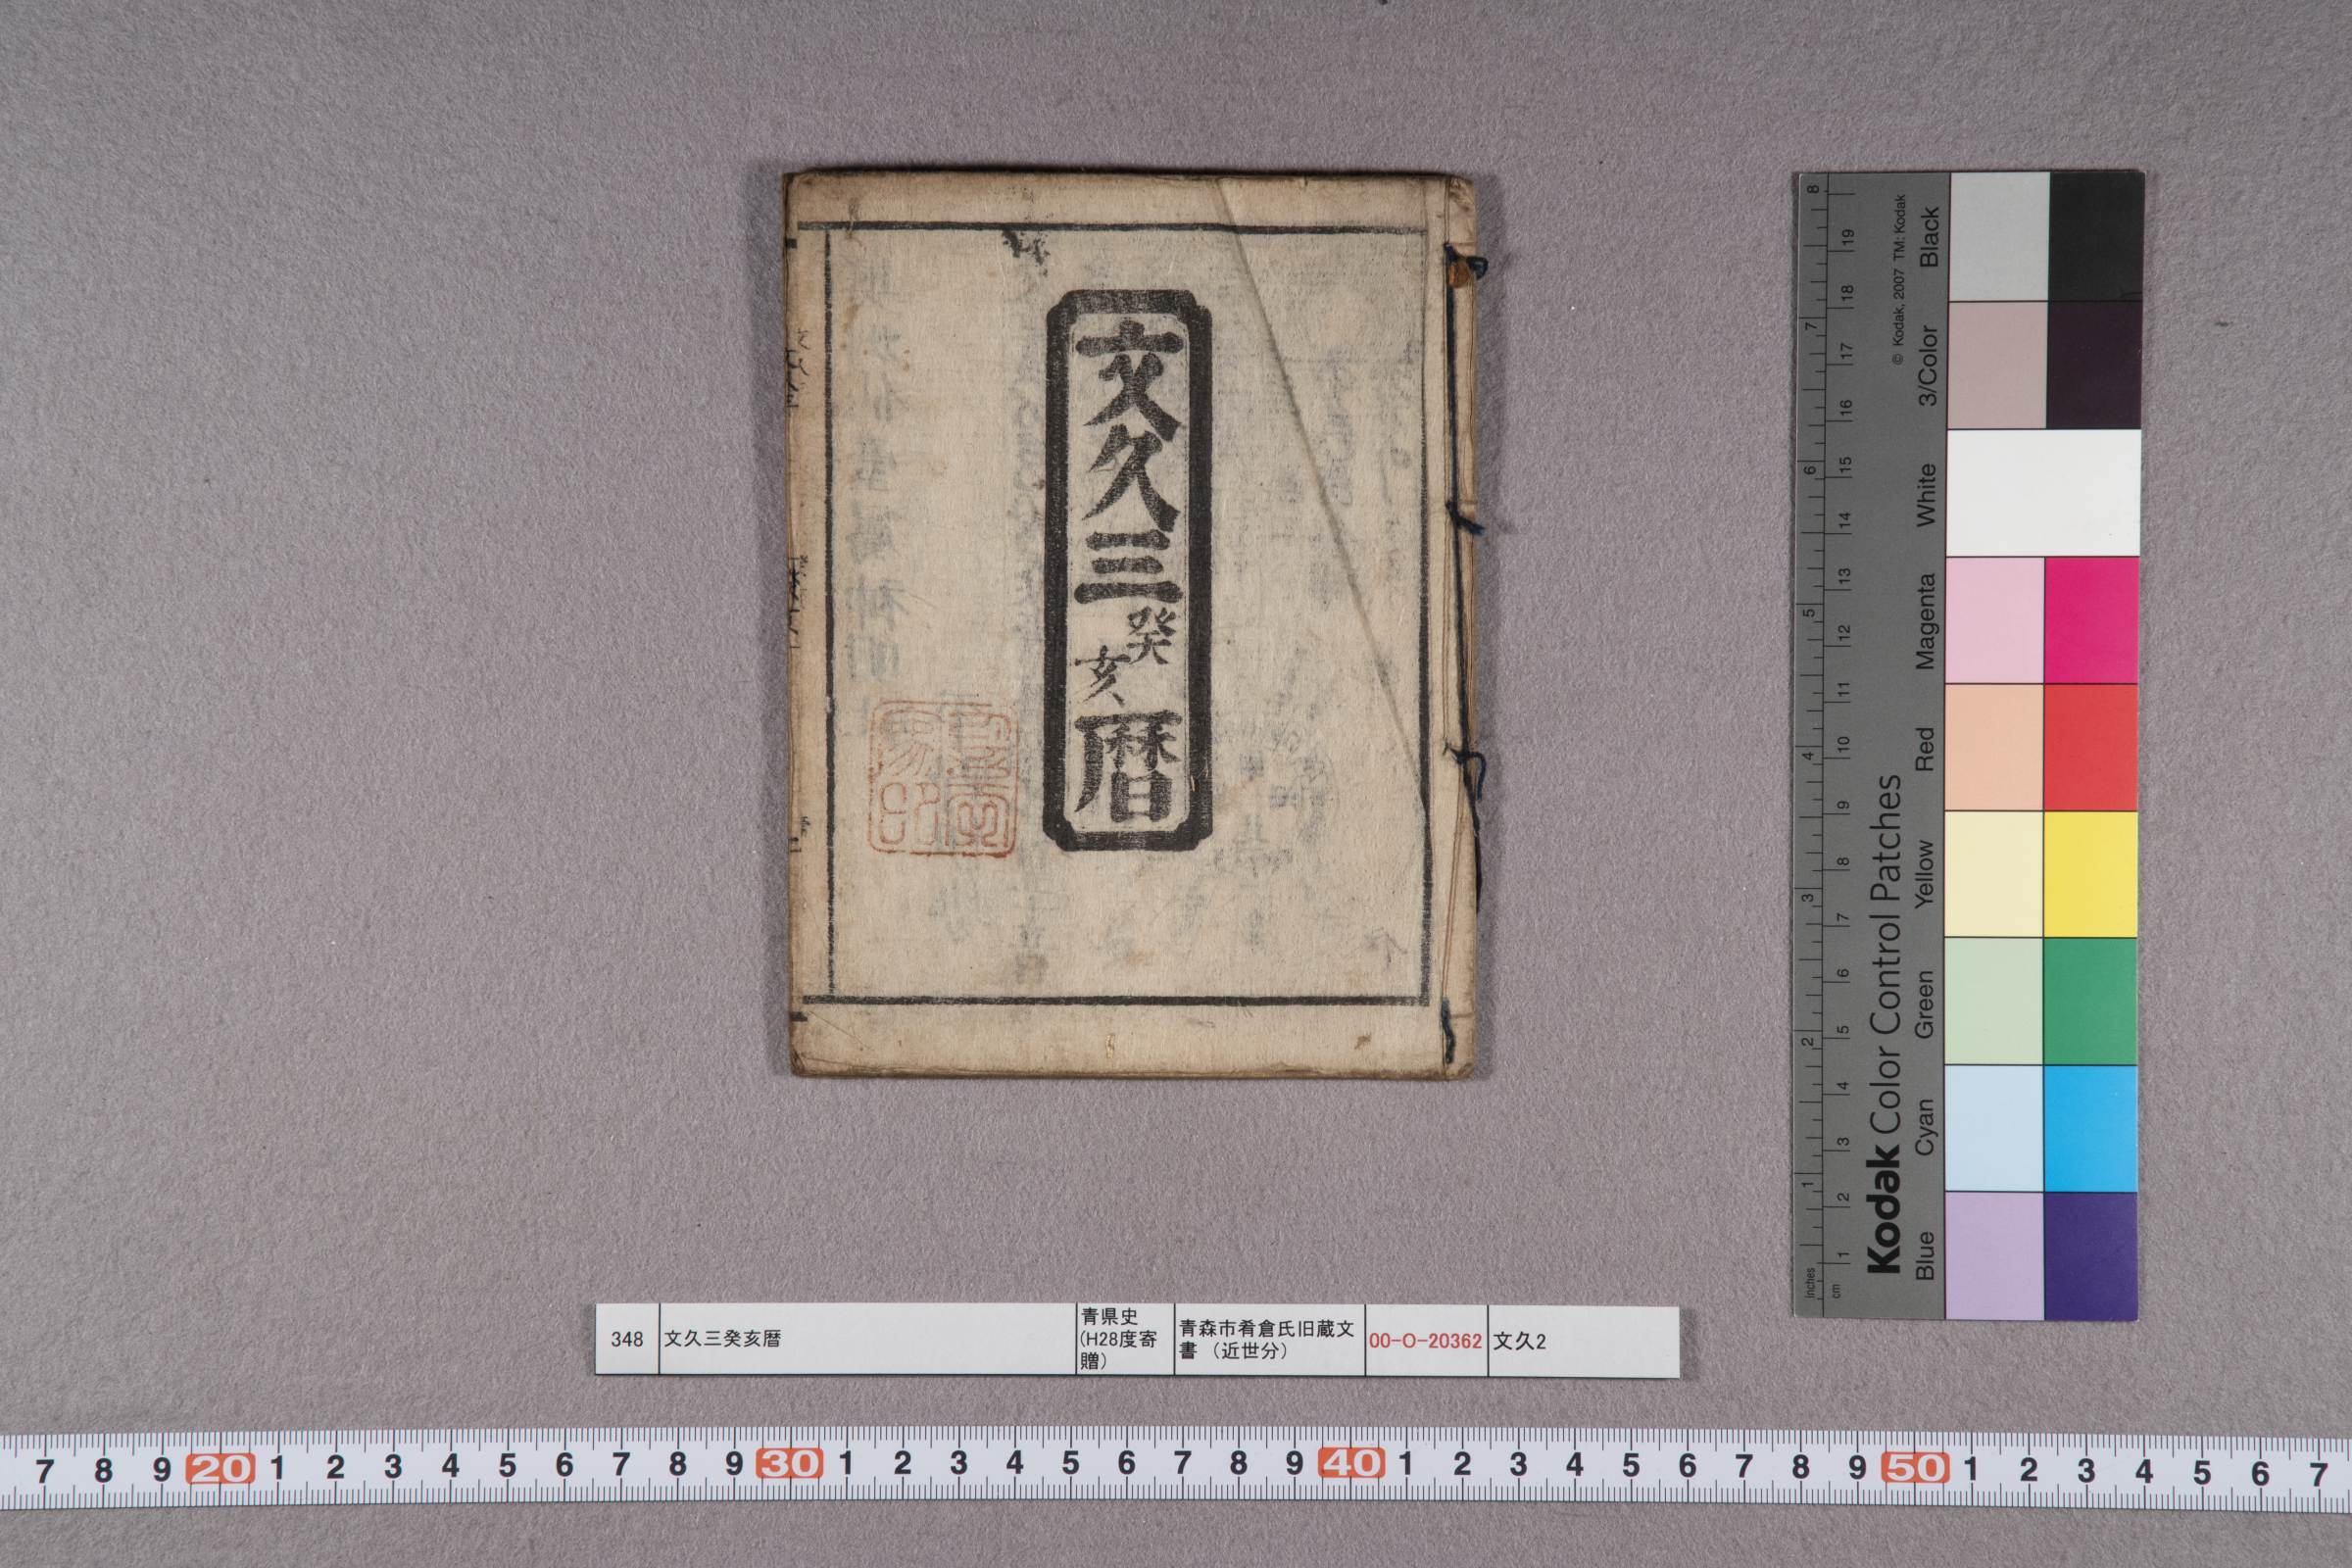 文久三癸亥暦
348
文久三癸亥暦
青県史
(H28度寄
贈)
青森市肴倉氏旧蔵文
書 (近世分)
00-O-20362
文久2
Kodak Color Control Patches
© Kodak, 2007 TM: Kodak
Blue Cyan Green Yellow Red Magenta White 3/Color Black
inches 1 2 3 4 5 6 7 8
cm 1 2 3 4 5 6 7 8 9 10 11 12 13 14 15 16 17 18 19
7 8 9 20 1 2 3 4 5 6 7 8 9 30 1 2 3 4 5 6 7 8 9 40 1 2 3 4 5 6 7 8 9 50 1 2 3 4 5 6 7